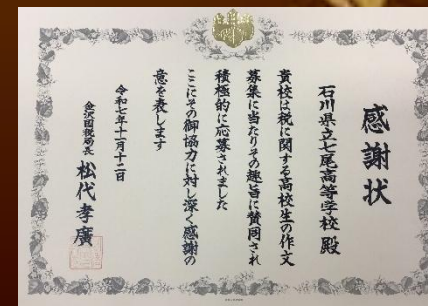 感謝状
石川県立七尾高等学校 殿
貴校は税に関する高校生の作文
募集に当たりその趣旨に賛同され
積極的に応募されました
ここにその御協力に対し深く感謝の
意を表します
令和七年十一月十二日
金沢国税局長 松代孝廣